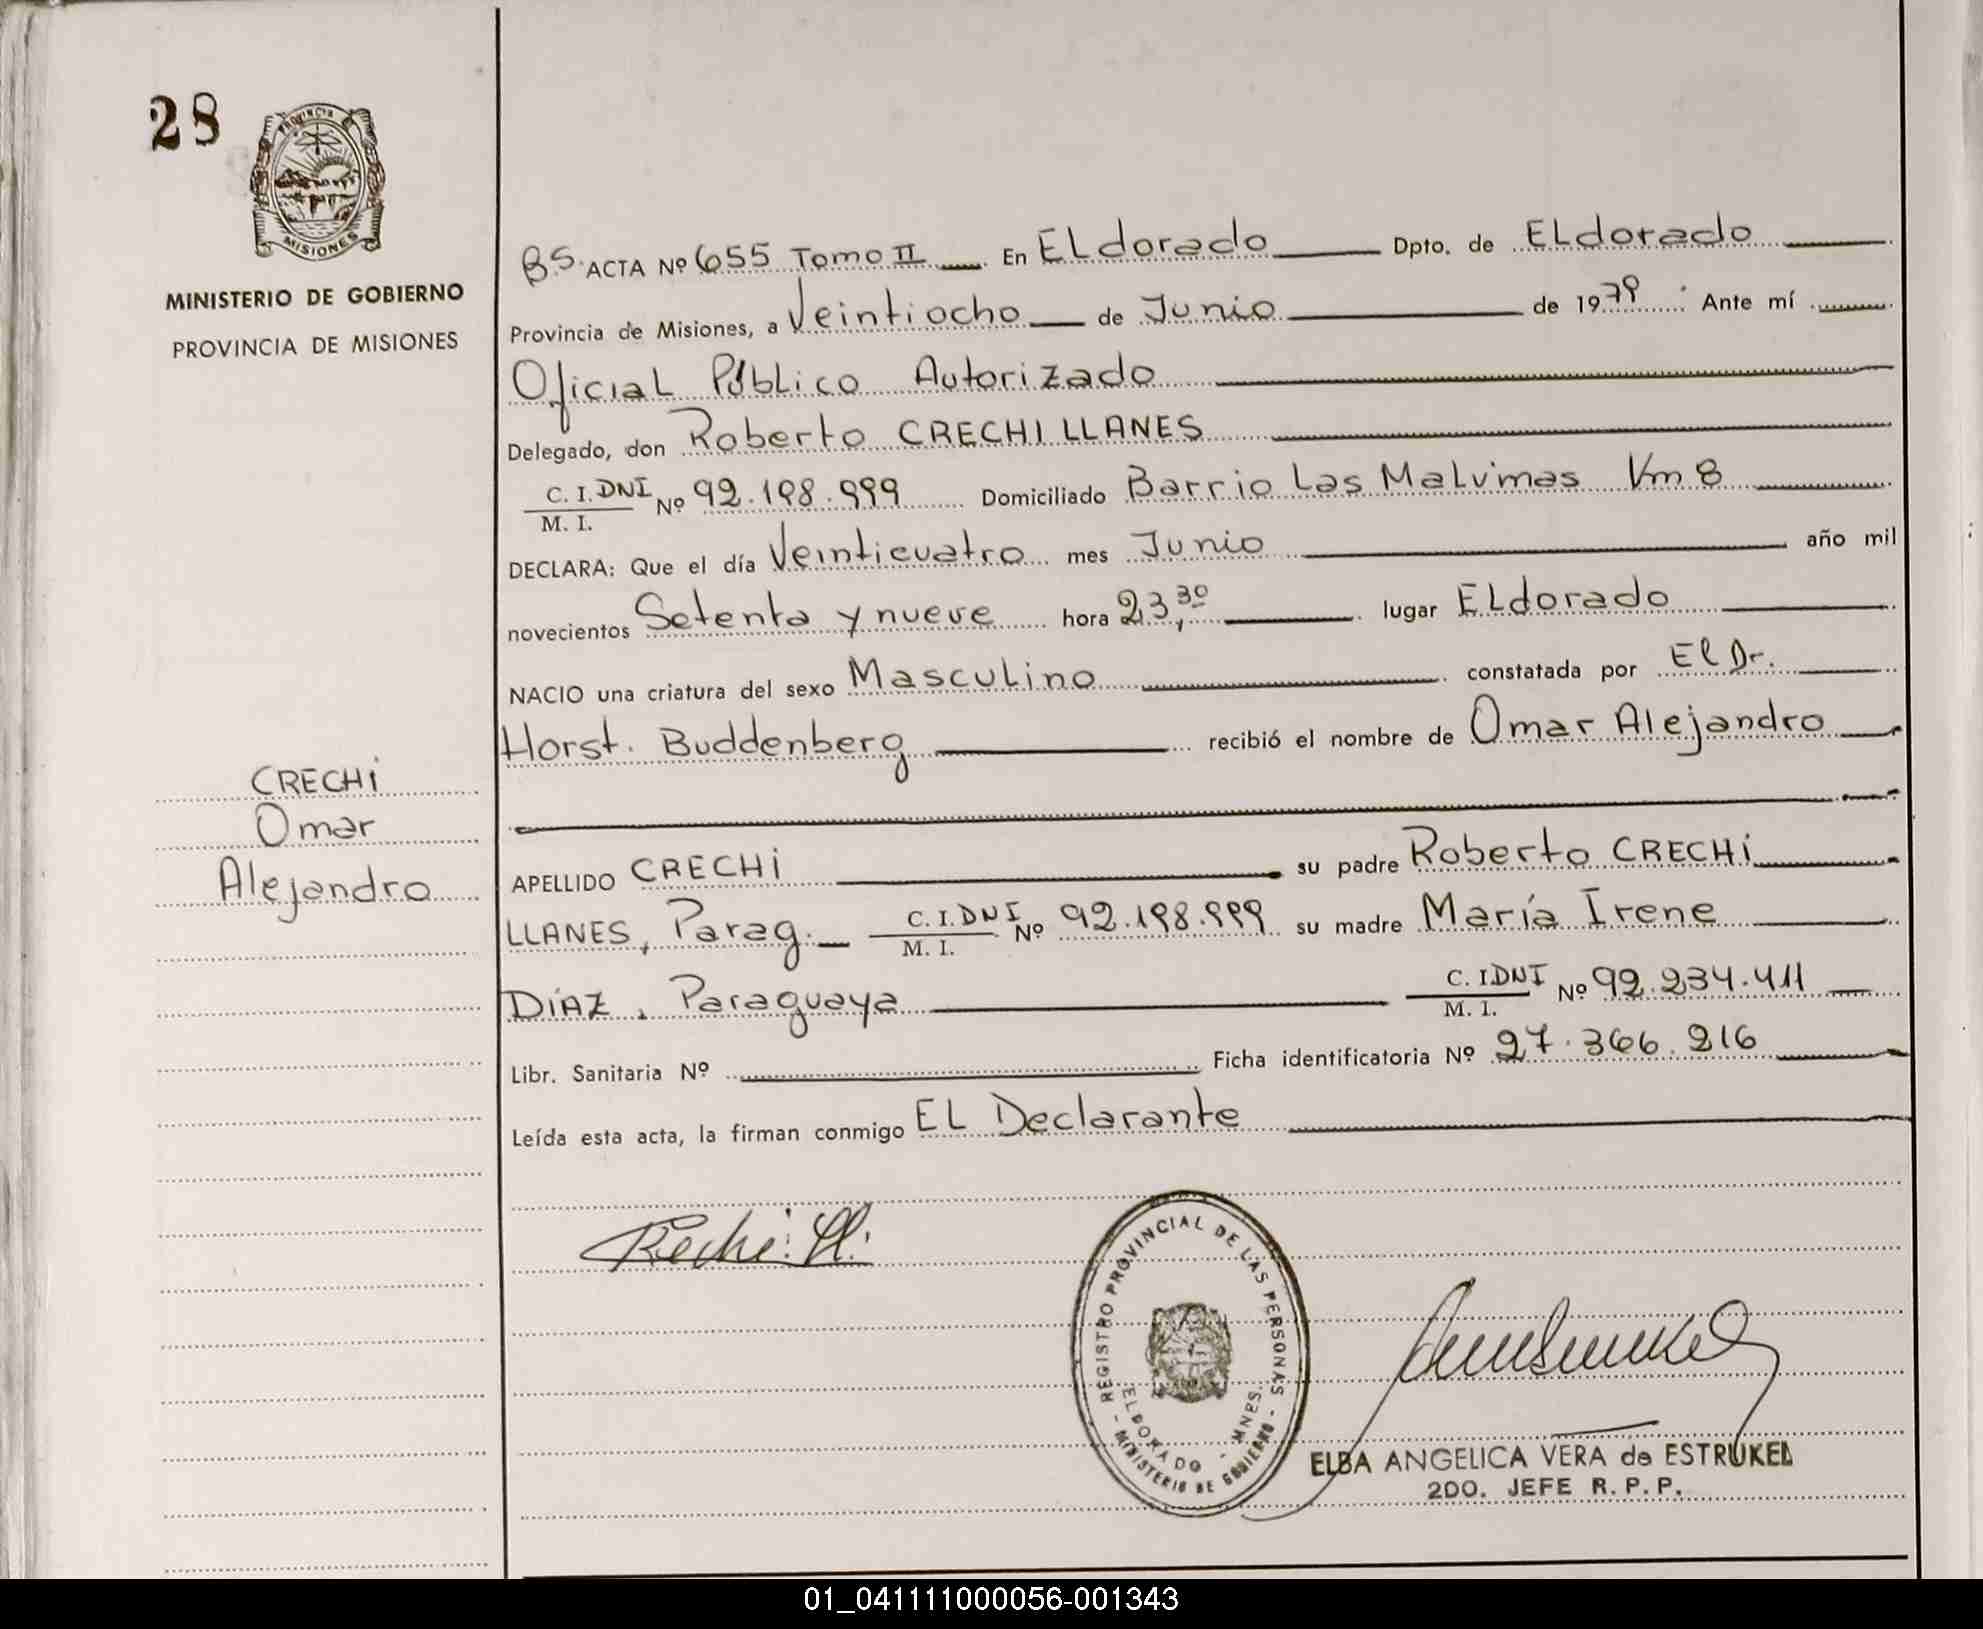 28
PROVINCIA
MISIONES
MINISTERIO DE GOBIERNO
PROVINCIA DE MISIONES
CRECHI
Omar
Alejandro
BS. ACTA Nº 655 Tomo II En ELdorado Dpto. de ELdorado
Provincia de Misiones, a Veintiocho de Junio de 1979 Ante mí
Oficial Público Autorizado
Delegado, don Roberto CRECHI LLANES
C. I. DNI
M. I. Nº 92.198.999 Domiciliado Barrio Las Malvinas Km 8
DECLARA: Que el día Veinticuatro mes Junio año mil
novecientos Setenta y nueve hora 23,30 lugar ELdorado
NACIO una criatura del sexo Masculino constatada por El Dr.
Horst. Buddenberg recibió el nombre de Omar Alejandro
APELLIDO CRECHI su padre Roberto CRECHI
LLANES, Parag. C. I. DNI
M. I. Nº 92.198.999 su madre María Irene
DíAZ, Paraguaya C. I. DNI
M. I. Nº 92.234.411
Libr. Sanitaria Nº Ficha identificatoria Nº 27.366.216
Leída esta acta, la firman conmigo EL Declarante
REGISTRO PROVINCIAL DE LAS PERSONAS
ELDORADO - MNES.
- MINISTERIO DE GOBIERNO -
ELBA ANGELICA VERA de ESTRUKEL
2DO. JEFE R. P. P.
01_041111000056-001343